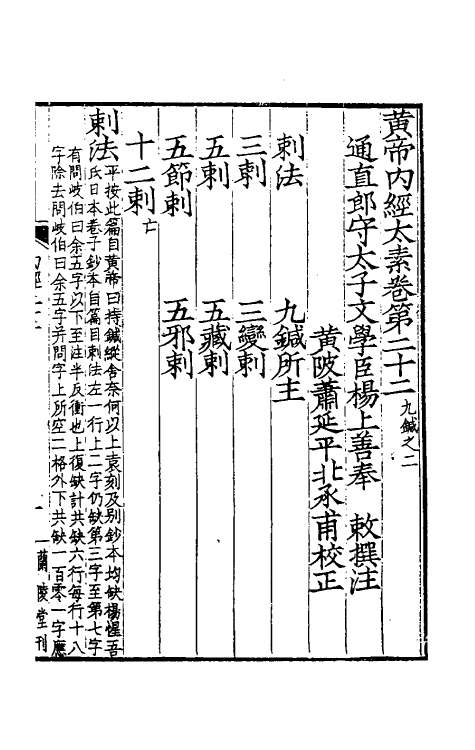 黄帝内經太素卷第二十二九鍼之二
通直郎守太子文學臣楊上善奉 敕撰注
黄陂蕭延平北承甫校正
刺法 九鍼所主
三刺 三變刺
五刺 五藏刺
五節刺 五邪刺
十二刺亡
刺法平按此篇目黄帝曰持鍼縱舍奈何以上袁刻及别鈔本均缺楊惺吾
氏日本卷子鈔本自篇目刺法左一行上二字仍缺第三字至第七字
有問岐伯曰余五字以下至注半反衝也上復缺計共缺六行每行十八
字除去問岐伯曰余五字并問字上所空二格外下共缺一百零一字應
蘭陵堂刊